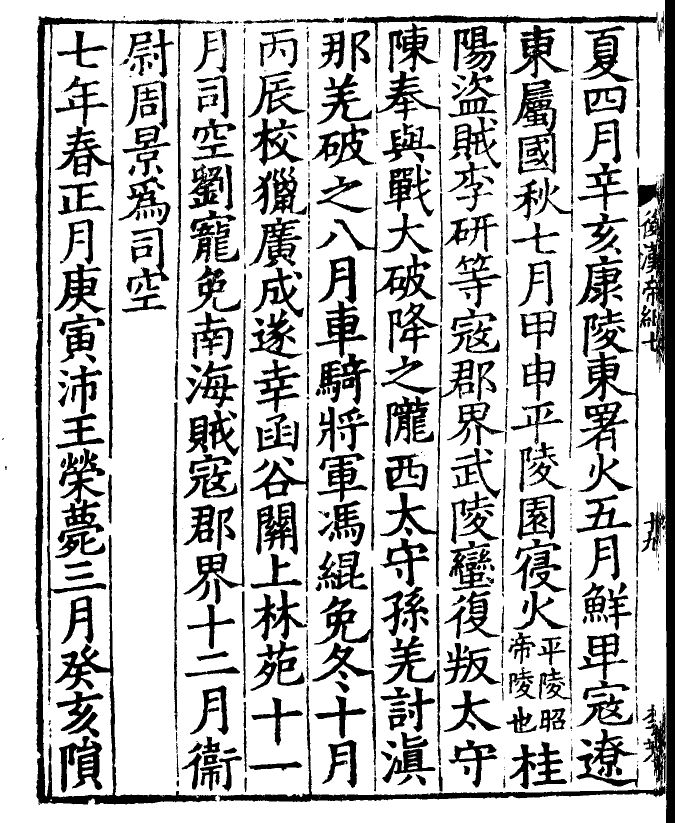 後漢帝紀七
十九
夏四月辛亥康陵東署火五月鮮卑寇遼
東屬國秋七月甲申平陵園寑火平陵昭帝陵也桂
陽盜賊李研等寇郡界武陵蠻復叛太守
陳奉與戰大破降之隴西太守孫羌討滇
那羌破之八月車騎將軍馮緄免冬十月
丙辰校獵廣成遂幸函谷關上林苑十一
月司空劉寵免南海賊寇郡界十二月衞
尉周景爲司空
七年春正月庚寅沛王榮薨三月癸亥隕